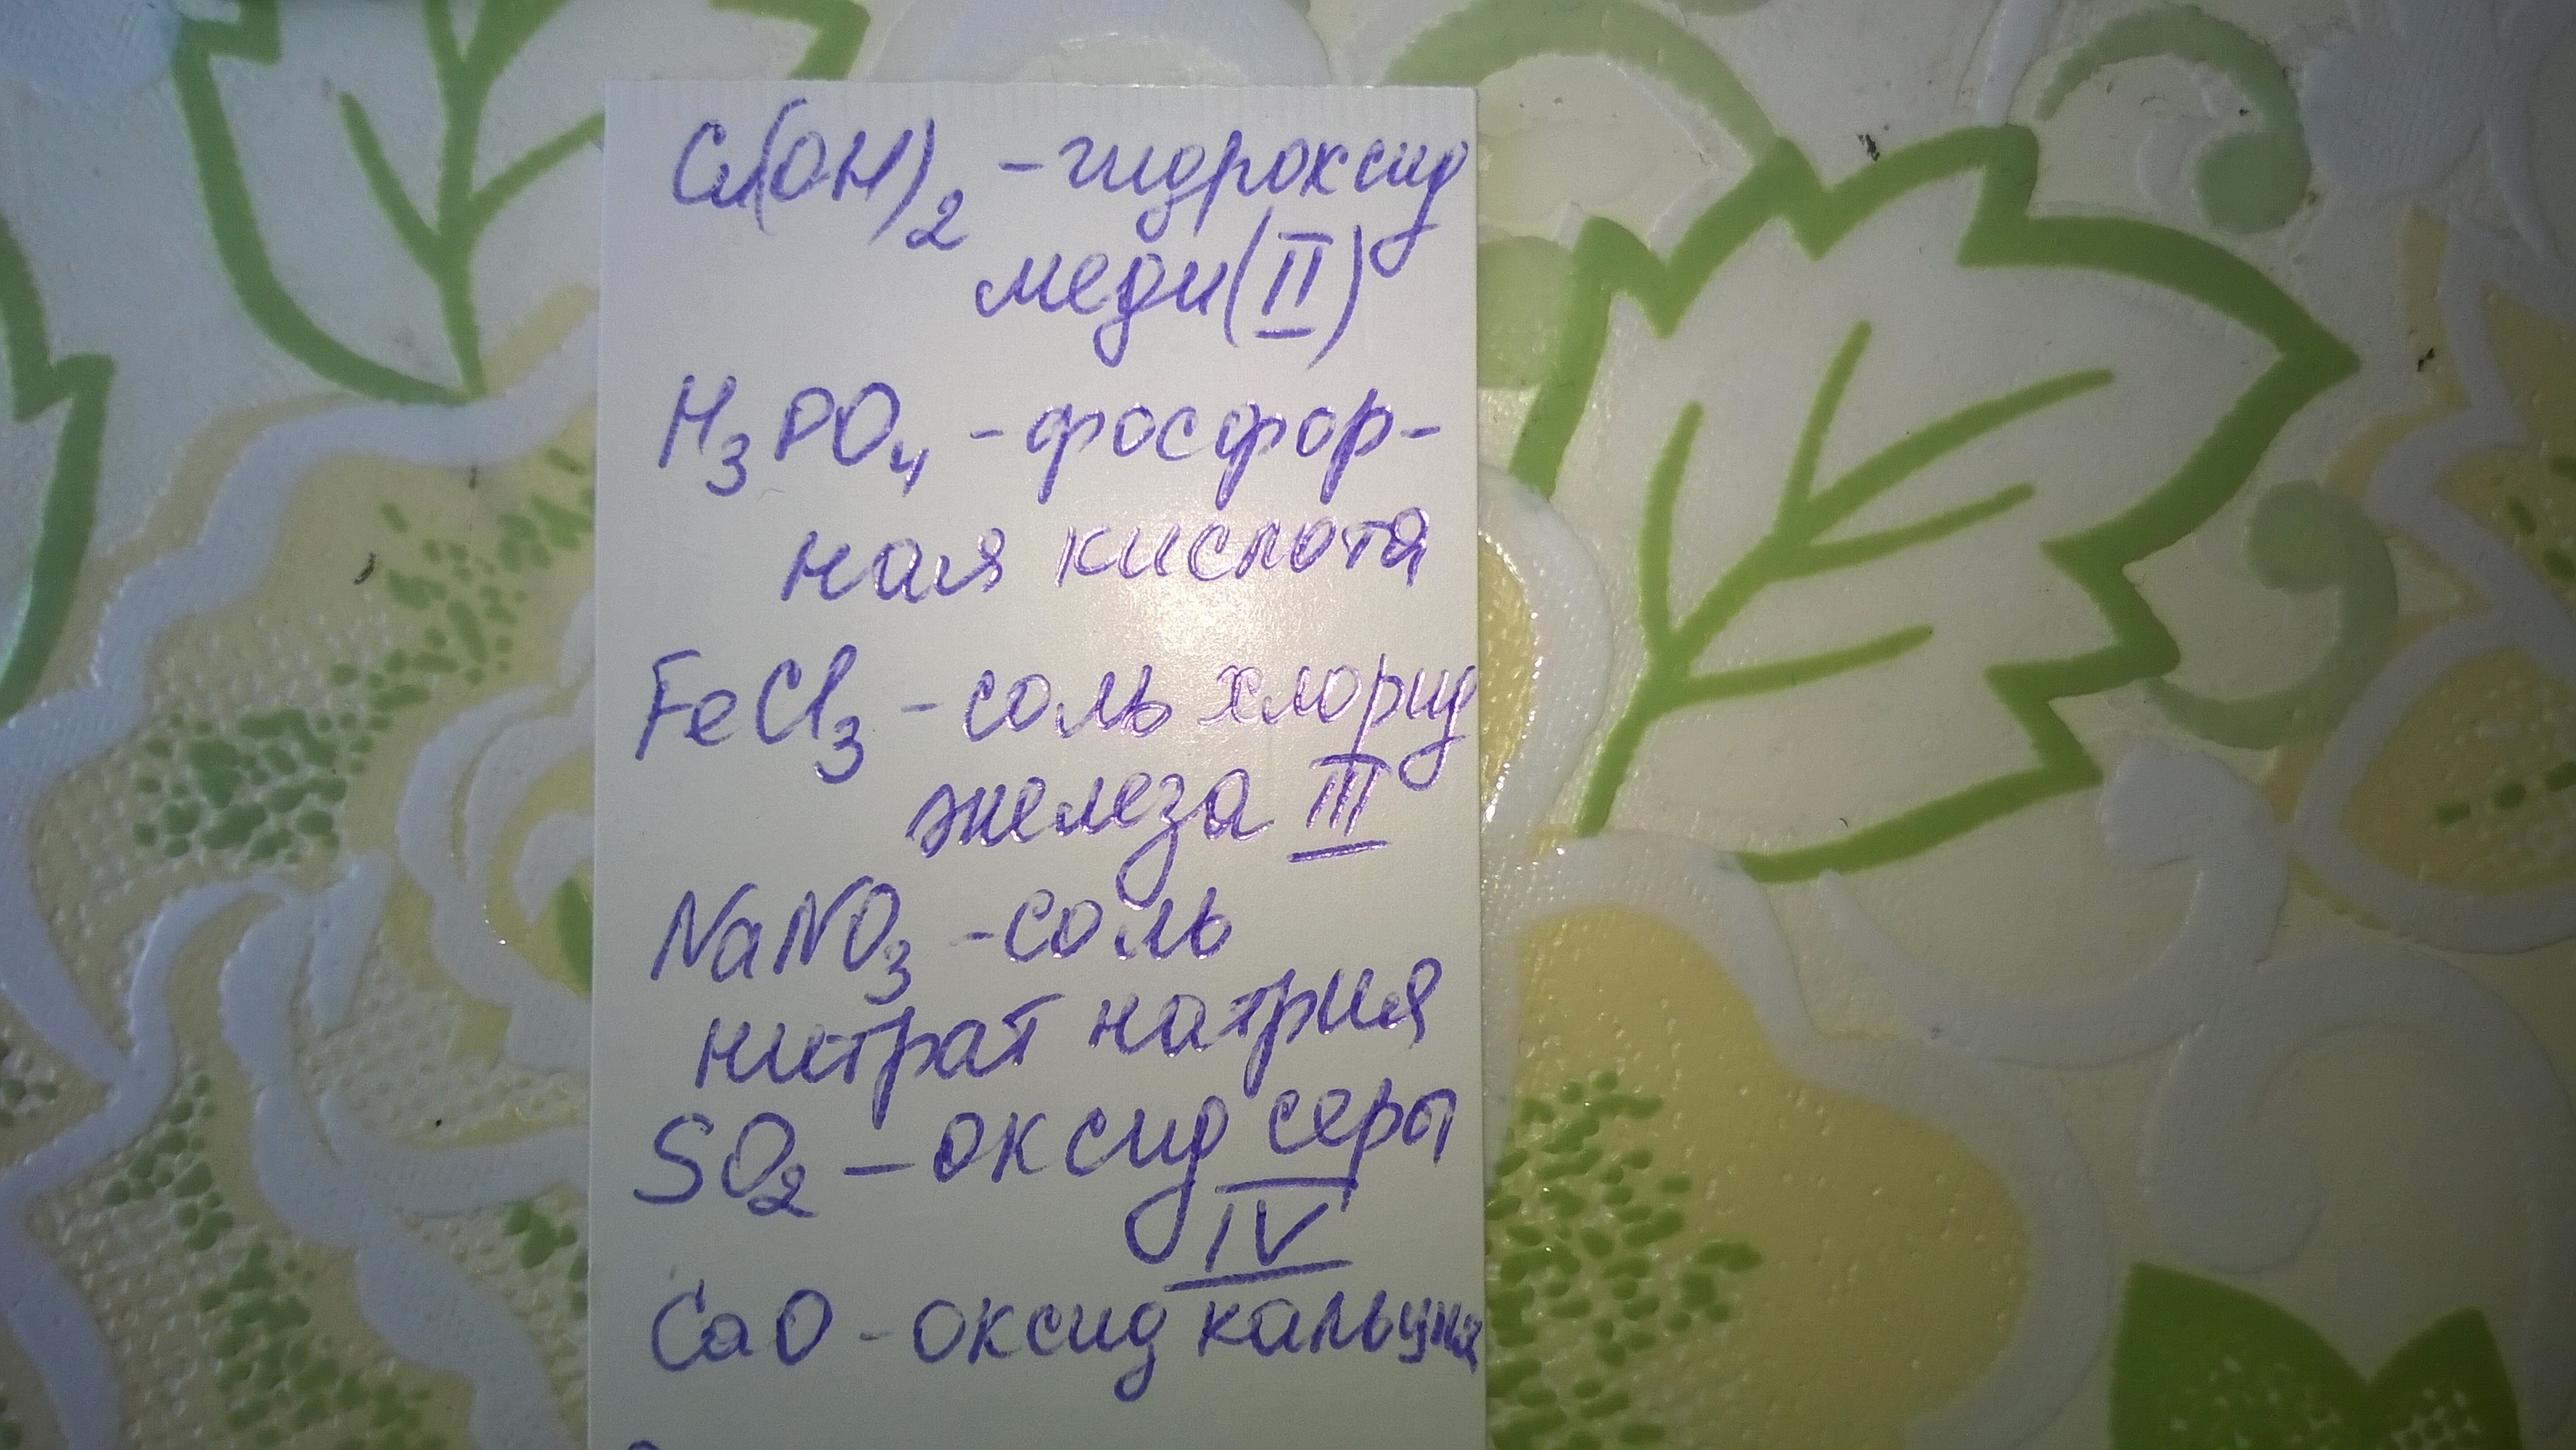 Cu(OH)₂ - гидроксид
меди (II)
H₃PO₄ - фосфор-
ная кислота
FeCl₃ - соль хлорид
железа III
NaNO₃ - соль
нитрат натрия
SO₂ - оксид серы
IV
CaO - оксид кальция